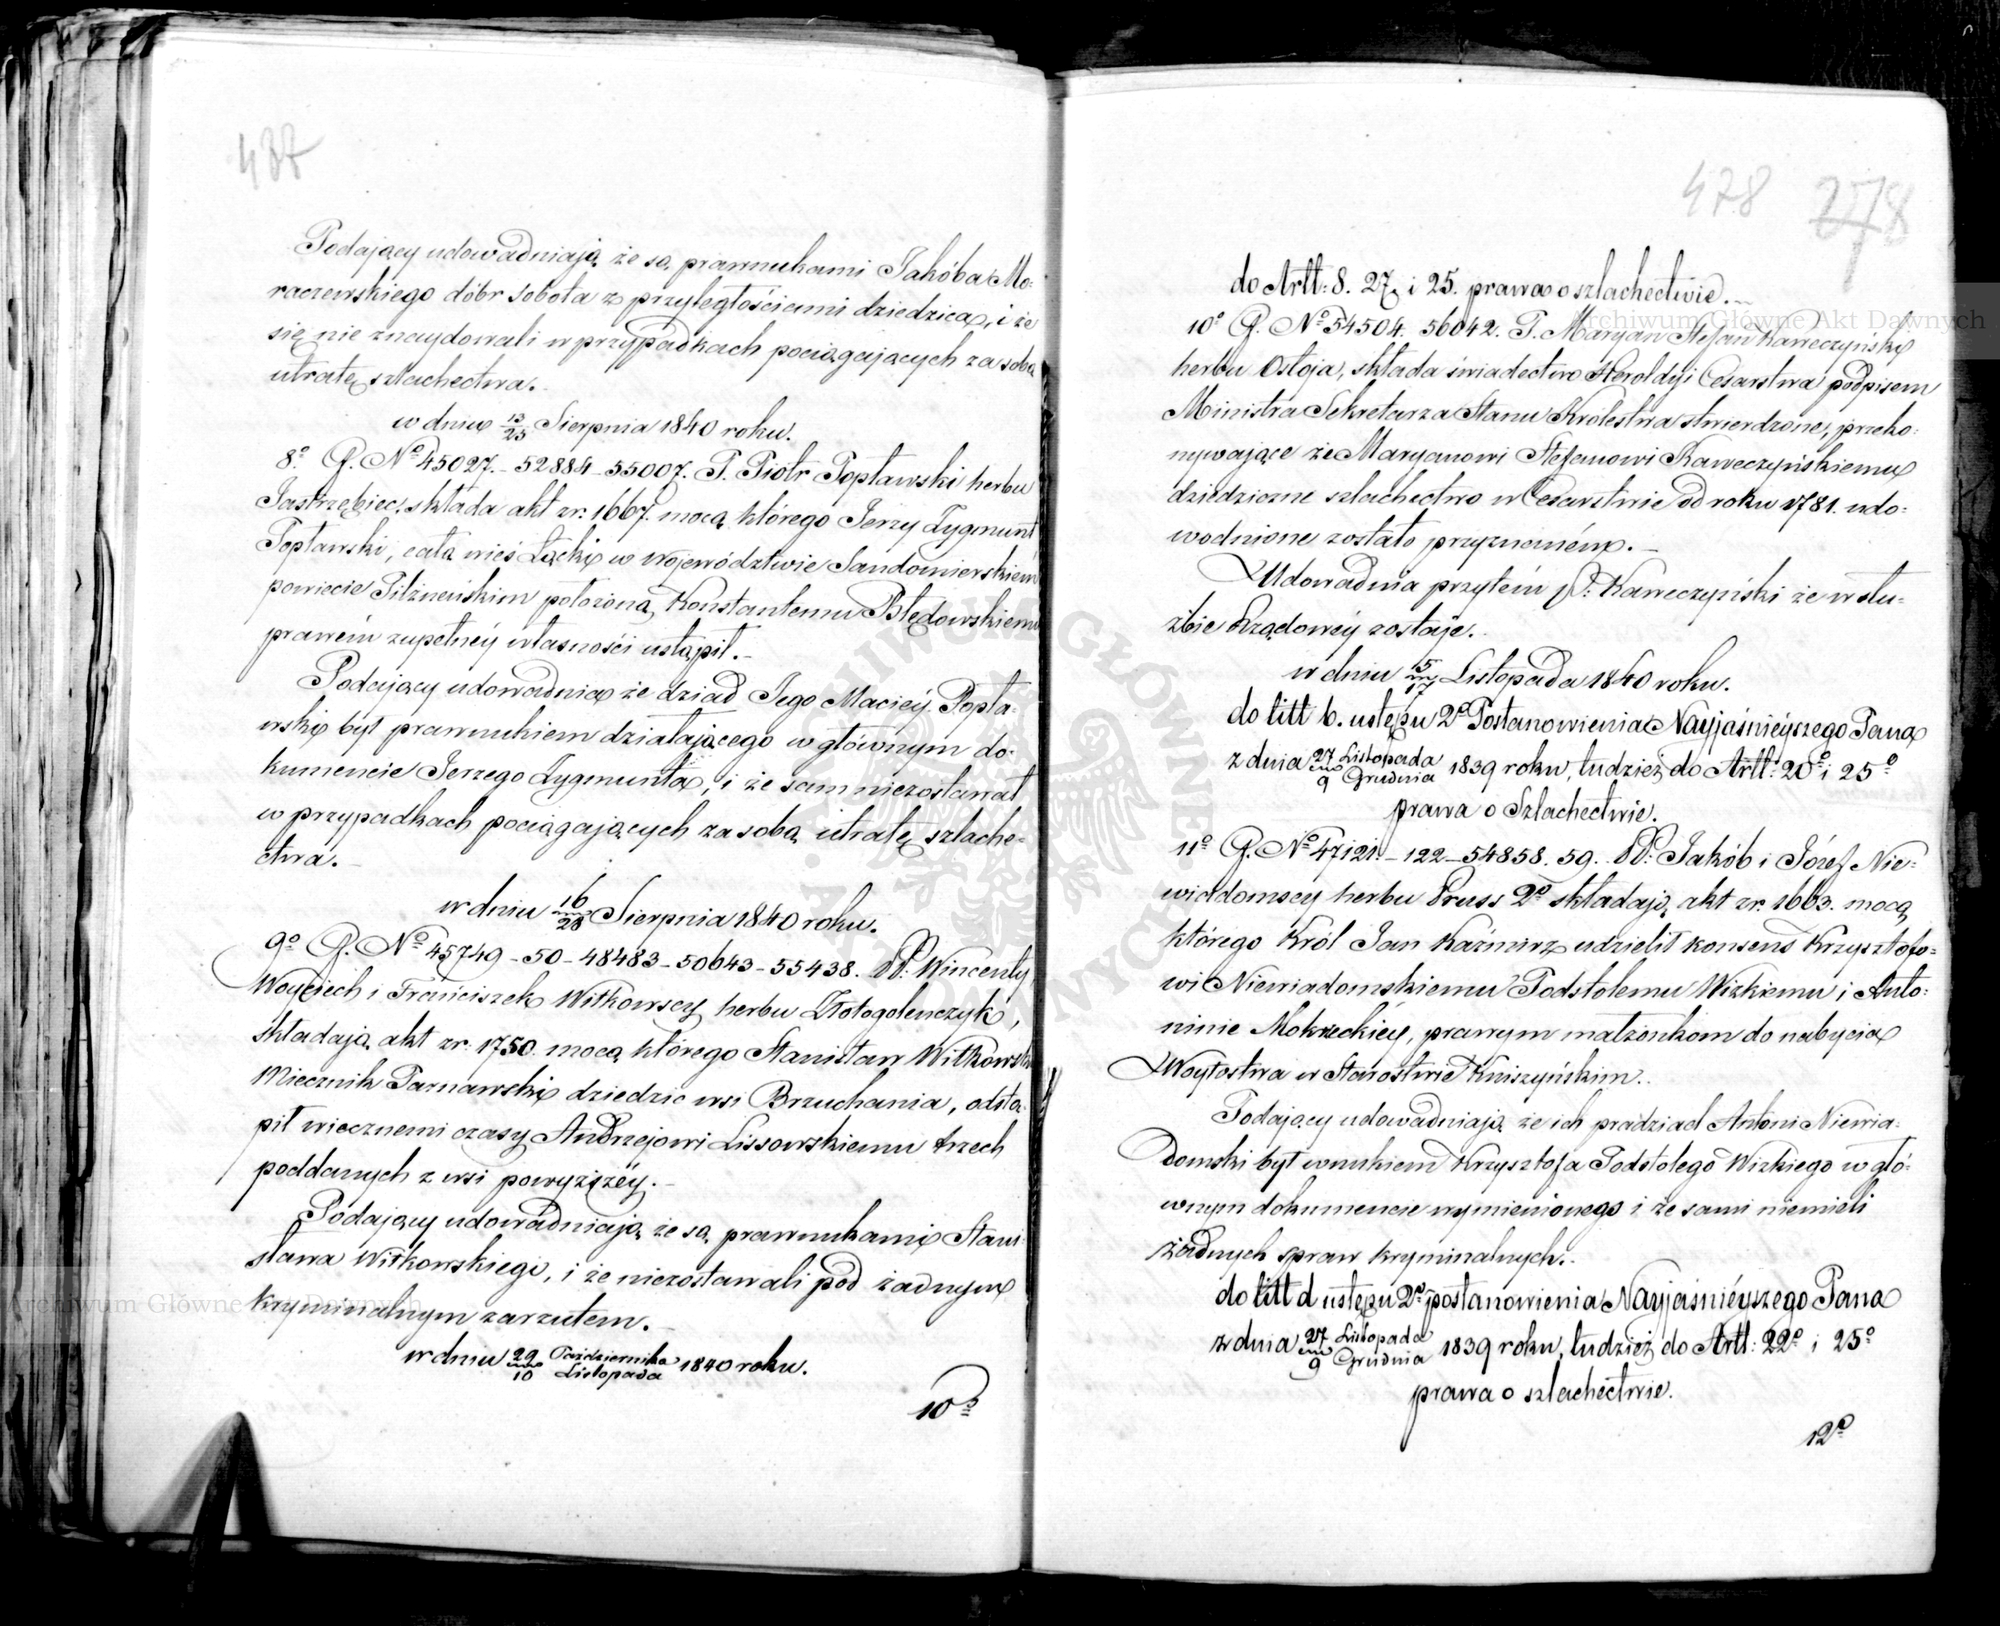 437
Podający udowadniają że są prawnukami Jakóba Mo-
raczewskiego dóbr Sobota z przyległościami dziedzica, i że
się nie znaydowali w przypadkach pociągających za sobą
utratę szlachectwa.
w dniu 13/25 Sierpnia 1840 roku.
8o. G. No 45027. - 52884 - 55007. P. Piotr Popławski herbu
Jastrzębiec, składa akt zr. 1667. mocą którego Jerzy Zygmunt
Popławski, całą wieś Łącki w Województwie Sandomierskiem
powiecie Pilzneńskim położoną, Konstantemu Błędowskiemu
prawem zupełney własności ustąpił. _
Podający udowadnia że dziad Jego Maciéy Popła-
wski był prawnukiem działającego w głównym do-
kumencie Jerzego Zygmunta, i że sam niezostawał
w przypadkach pociągających za sobą utratę szlache-
ctwa. _
w dniu 16/28 Sierpnia 1840 roku.
9o G. No 45749 - 50 - 48483 - 50643 - 55438. PP: Wincenty
Woyciech i Franciszek Witkowscy herbu Złotogolenczyk,
składają akt zr. 1750. mocą którego Stanisław Witkowski
Miecznik Parnawski dziedzic wsi Brzuchania, odstą-
pił wiecznemi czasy Andrzejowi Lissowskiemu trzech
poddanych z wsi powyższéy. _
Podający udowadniają że są prawnukami Stani-
sława Witkowskiego, i że niezostawali pod żadnym
kryminalnym zarzutem. _
w dniu 29 Października/10 Listopada 1840 roku.
10o
478 278
do Artt: 8. 27. i 25. prawa o szlachectwie. _
10o G. No 54504. 56042. P. Maryan Stefan Kaweczyński
herbu Ostoja, składa świadectwo Heroldyi Cesarstwa podpisem
Ministra Sekretarza Stanu Królestwa stwierdzone, przeko-
nywające że Maryanowi Stefanowi Kaweczyńskiemu
dziedziczne szlachectwo w Cesarstwie od roku 1781. udo-
wodnione zostało przyznaném. _
Udowadnia przytém P: Kaweczyński że w słu-
żbie Rządowéy zostaje. _
w dniu 5/17 Listopada 1840 roku.
do litt b. ustępu 2o Postanowienia Nayjaśniéyszego Pana
z dnia 27 Listopada/9 Grudnia 1839 roku, tudzież do Artt: 20o i 25o
prawa o Szlachectwie.
11o G. No 47121. - 122 - 54858. 59. PP: Jakób i Józef Nie-
wiadomscy herbu Pruss 2o składają akt zr. 1663. mocą
którego Król Jan Kaźmirz udzielił konsens Krzysztofo-
wi Niewiadomskiemu Podstolemu Wizkiemu i Anto-
ninie Mokrzeckiey, prawym małżonkom do nabycia
Woytostwa w Starostwie Kniszyńskim. _
Podający udowadniają że ich pradziad Antoni Niewia-
domski był wnukiem Krzysztofa Podstolego Wizkiego w głó-
wnym dokumencie wymienionego i że sami niemieli
żadnych spraw kryminalnych. _
do litt d ustępu 2o postanowienia Nayjaśniéyszego Pana
z dnia 27 Listopada/9 Grudnia 1839 roku, tudzież do Artt: 22o i 25o
prawa o szlachectwie.
12o
Archiwum Główne Akt Dawnych
Archiwum Główne Akt Dawnych
ARCHIWUM GŁÓWNE AKT DAWNYCH